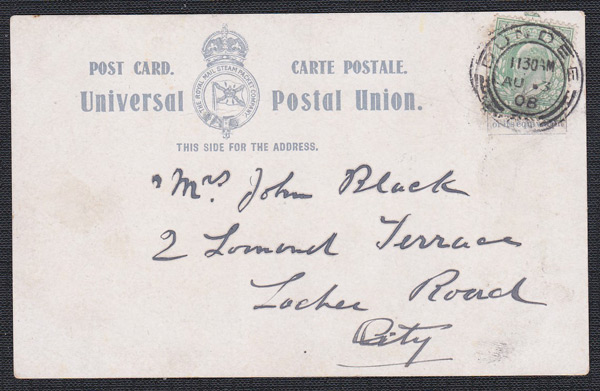 POST CARD. CARTE POSTALE.
THE ROYAL MAIL STEAM PACKET COMPANY
Universal Postal Union.
THIS SIDE FOR THE ADDRESS.
DUNDEE
1130AM
AU
08
Mrs John Black
2 Lomond Terrace
Lochee Road
City